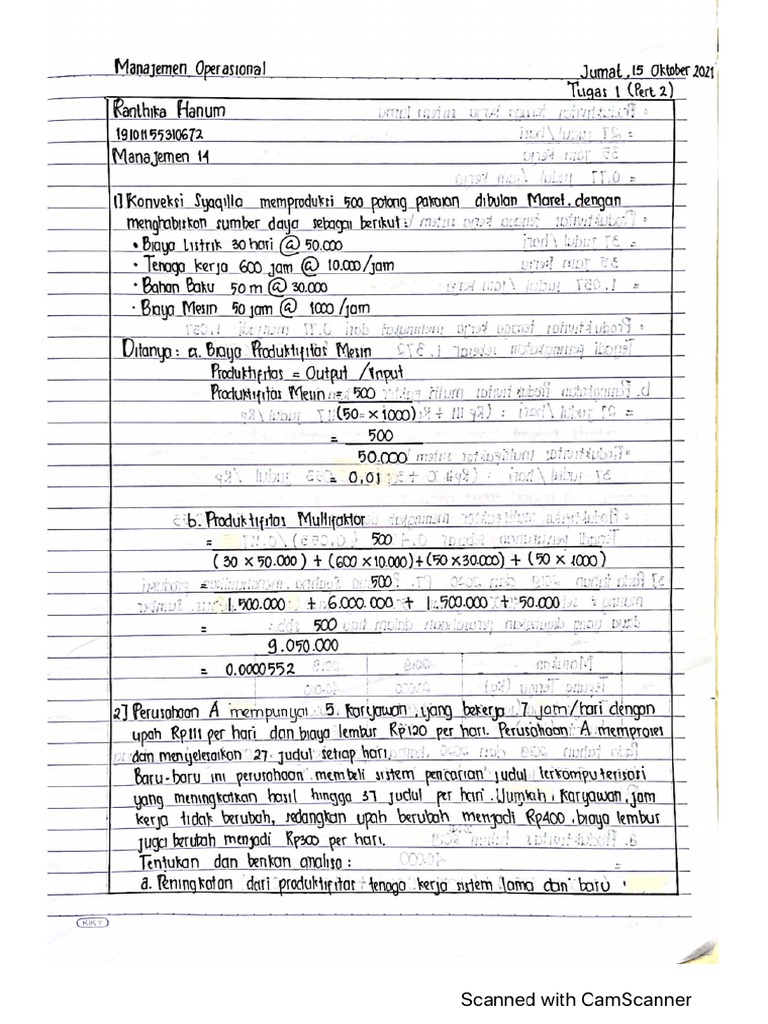 Manajemen Operasional
Jumat, 15 Oktober 2021
Tugas 1 (Pert 2)
Ranthika Hanum
19101155310672
Manajemen 14
1] Konveksi Syaqilla memproduksi 500 potong pakaian dibulan Maret. dengan
menghabiskan sumber daya sebagai berikut:
• Biaya Listrik 30 hari @ 50.000
• Tenaga kerja 600 jam @ 10.000/jam
• Bahan Baku 50 m @ 30.000
• Biaya Mesin 50 jam @ 1000/jam
Ditanya : a. Biaya Produktifitas Mesin
Produktifitas = Output / Input
Produktifitas Mesin = 500
(50 × 1000)
= 500
50.000
= 0,01
b. Produktifitas Multifaktor
= 500
(30 × 50.000) + (600 × 10.000) + (50 × 30.000) + (50 × 1000)
= 500
1.500.000 + 6.000.000 + 1.500.000 + 50.000
= 500
9.050.000
= 0.0000552
2] Perusahaan A mempunyai 5 karyawan, yang bekerja 7 jam/hari dengan
upah Rp111 per hari dan biaya lembur Rp120 per hari. Perusahaan A memproses
dan menyelesaikan 27 judul setiap hari.
Baru-baru ini perusahaan membeli sistem pencarian judul terkomputerisasi
yang meningkatkan hasil hingga 37 judul per hari. Jumlah karyawan, jam
kerja tidak berubah, sedangkan upah berubah menjadi Rp400, biaya lembur
juga berubah menjadi Rp300 per hari.
Tentukan dan berikan analisa :
a. Peningkatan dari produktifitas tenaga kerja sistem lama dan baru
KIKY
Scanned with CamScanner